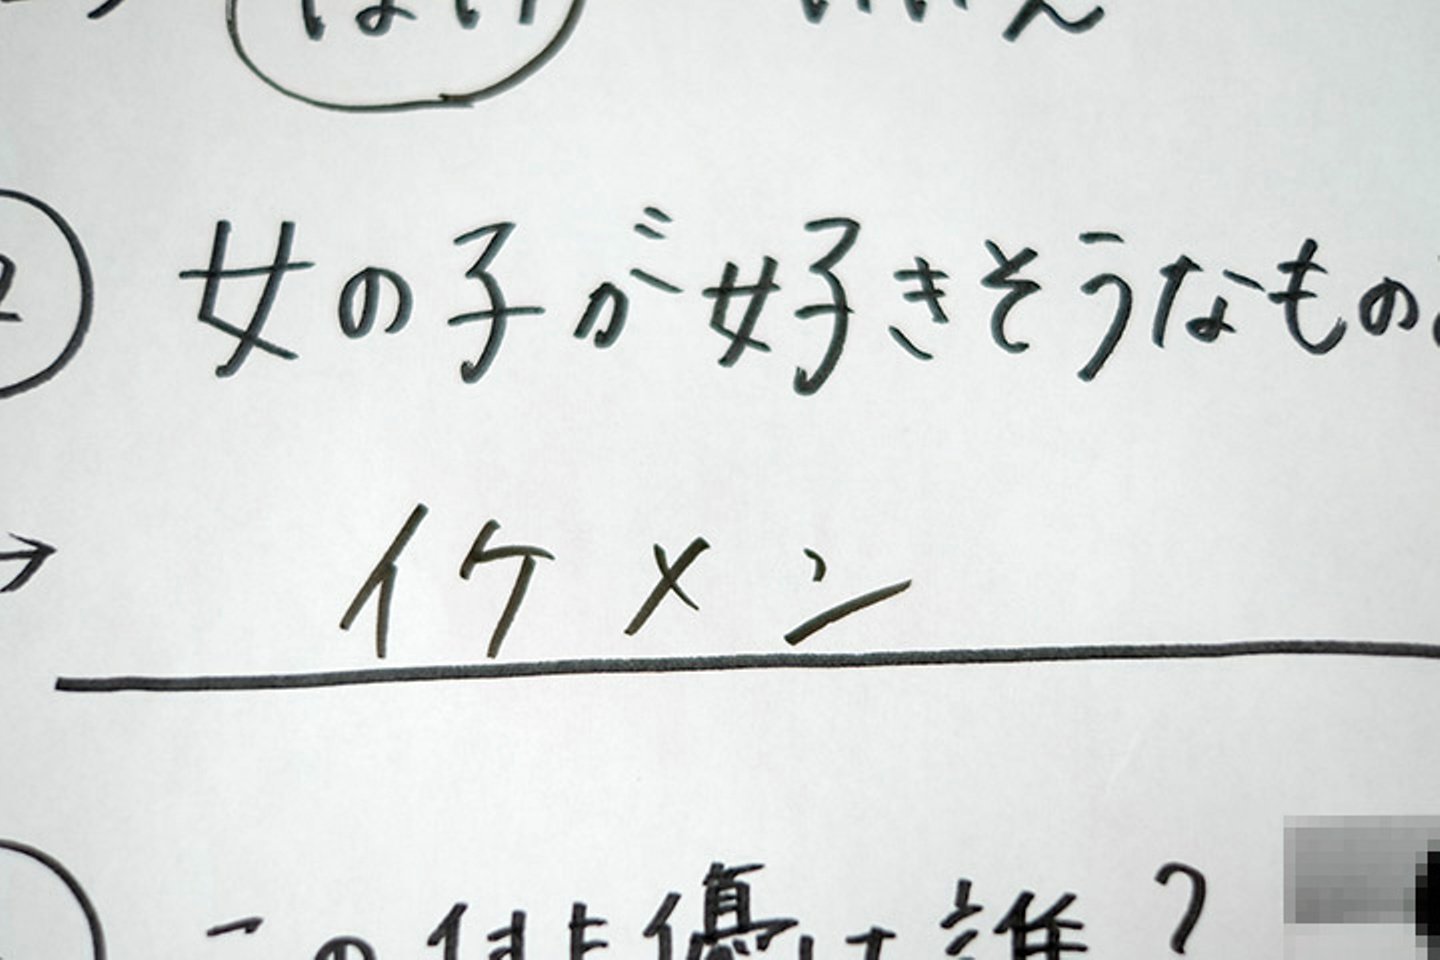 はい いいえ
② 女の子が好きそうなもの
→ イケメン
この俳優は誰?